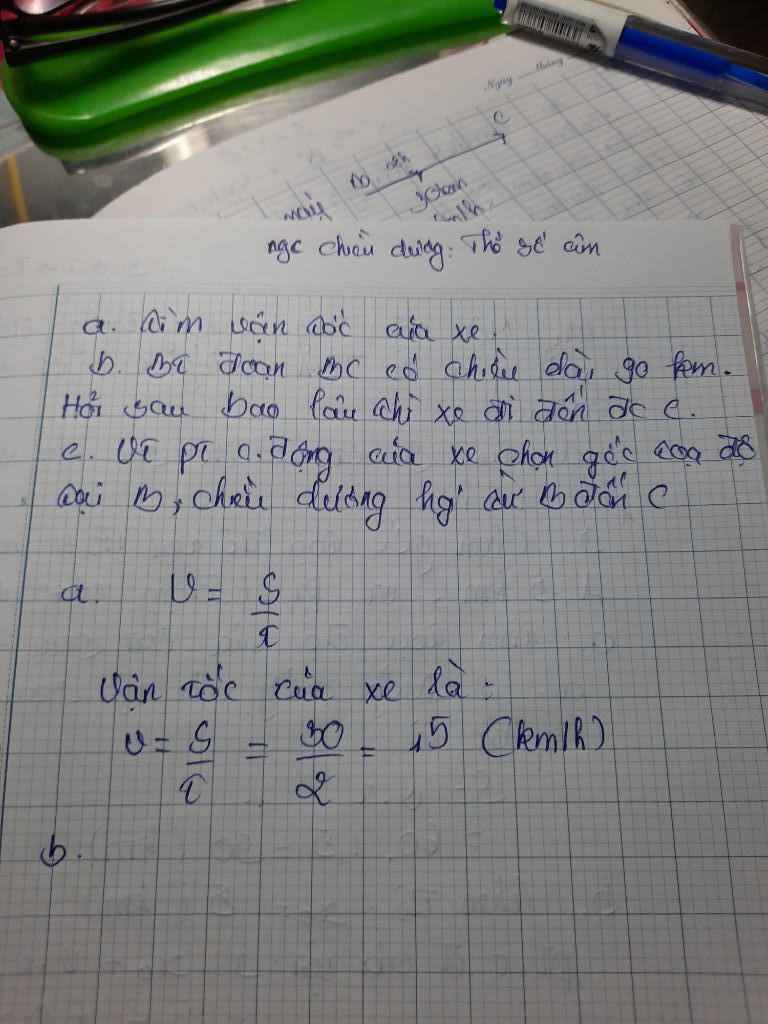 Ngày Tháng
C
B 2h
30km
km/h
ngc chiều dương: Thì số âm
a. Tìm vận tốc của xe.
b. Bt đoạn BC có chiều dài 90 km.
Hỏi sau bao lâu thì xe đi đến đc C.
c. Vt pt c.động của xe chọn gốc tọa độ
tại B, chiều dương hg từ B đến C
a. v = S/t
Vận tốc của xe là:
v = S/t = 30/2 = 15 (km/h)
b.